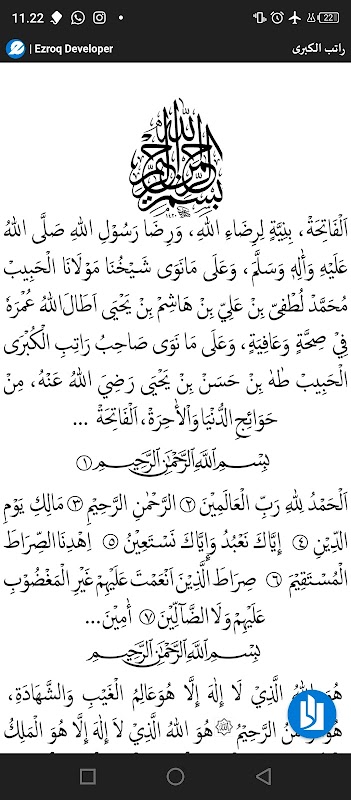 11.22
22
| Ezroq Developer راتب الكبرى
اَلْفَاتِحَةْ، بِنِيَّةٍ لِرِضَاءِ اللهِ، وَرِضَا رَسُوْلِ اللهِ صَلَّى اللهُ
عَلَيْهِ وَاٰلِهِ وَسَلَّمَ، وَعَلَى مَانَوَى شَيْخُنَا مَوْلَانَا الْحَبِيْبْ
مُحَمَّدْ لُطْفِيْ بِنْ عَلِيّ بِنْ هَاشِمْ بِنْ يَحْيَى اَطَالَ اللهُ عُمْرَهُ
فِيْ صِحَّةٍ وَعَافِيَةٍ، وَعَلَى مَا نَوَى صَاحِبُ رَاتِبِ الْكُبْرَى
الْحَبِيْبْ طٰهٰ بِنْ حَسَنْ بِنْ يَحْيَى رَضِيَ اللهُ عَنْهُ، مِنْ
حَوَائِجِ الدُّنْيَا وَالْأٰخِرَةْ، اَلْفَاتِحَةْ ...
بِسْمِ اللهِ الرَّحْمٰنِ الرَّحِيْمِ ١
اَلْحَمْدُ لِلهِ رَبِّ الْعَالَمِيْنَ ٢ الرَّحْمٰنِ الرَّحِيْمِ ٣ مَالِكِ يَوْمِ
الدِّيْنِ ٤ إِيَّاكَ نَعْبُدُ وَإِيَّاكَ نَسْتَعِيْنُ ٥ اِهْدِنَا الصِّرَاطَ
الْمُسْتَقِيْمَ ٦ صِرَاطَ الَّذِيْنَ اَنْعَمْتَ عَلَيْهِمْ غَيْرِ الْمَغْضُوْبِ
عَلَيْهِمْ وَلَا الضَّآلِّيْنَ ٧ أٰمِيْنَ...
بِسْمِ اللهِ الرَّحْمٰنِ الرَّحِيْمِ
هُوَ اللهُ الَّذِيْ لَا إِلٰهَ إِلَّا هُوَ عَالِمُ الْغَيْبِ وَالشَّهَادَةِ،
الرَّحِيْمُ هُوَ اللهُ الَّذِيْ لَا إِلٰهَ إِلَّا هُوَ الْمَلِكُ